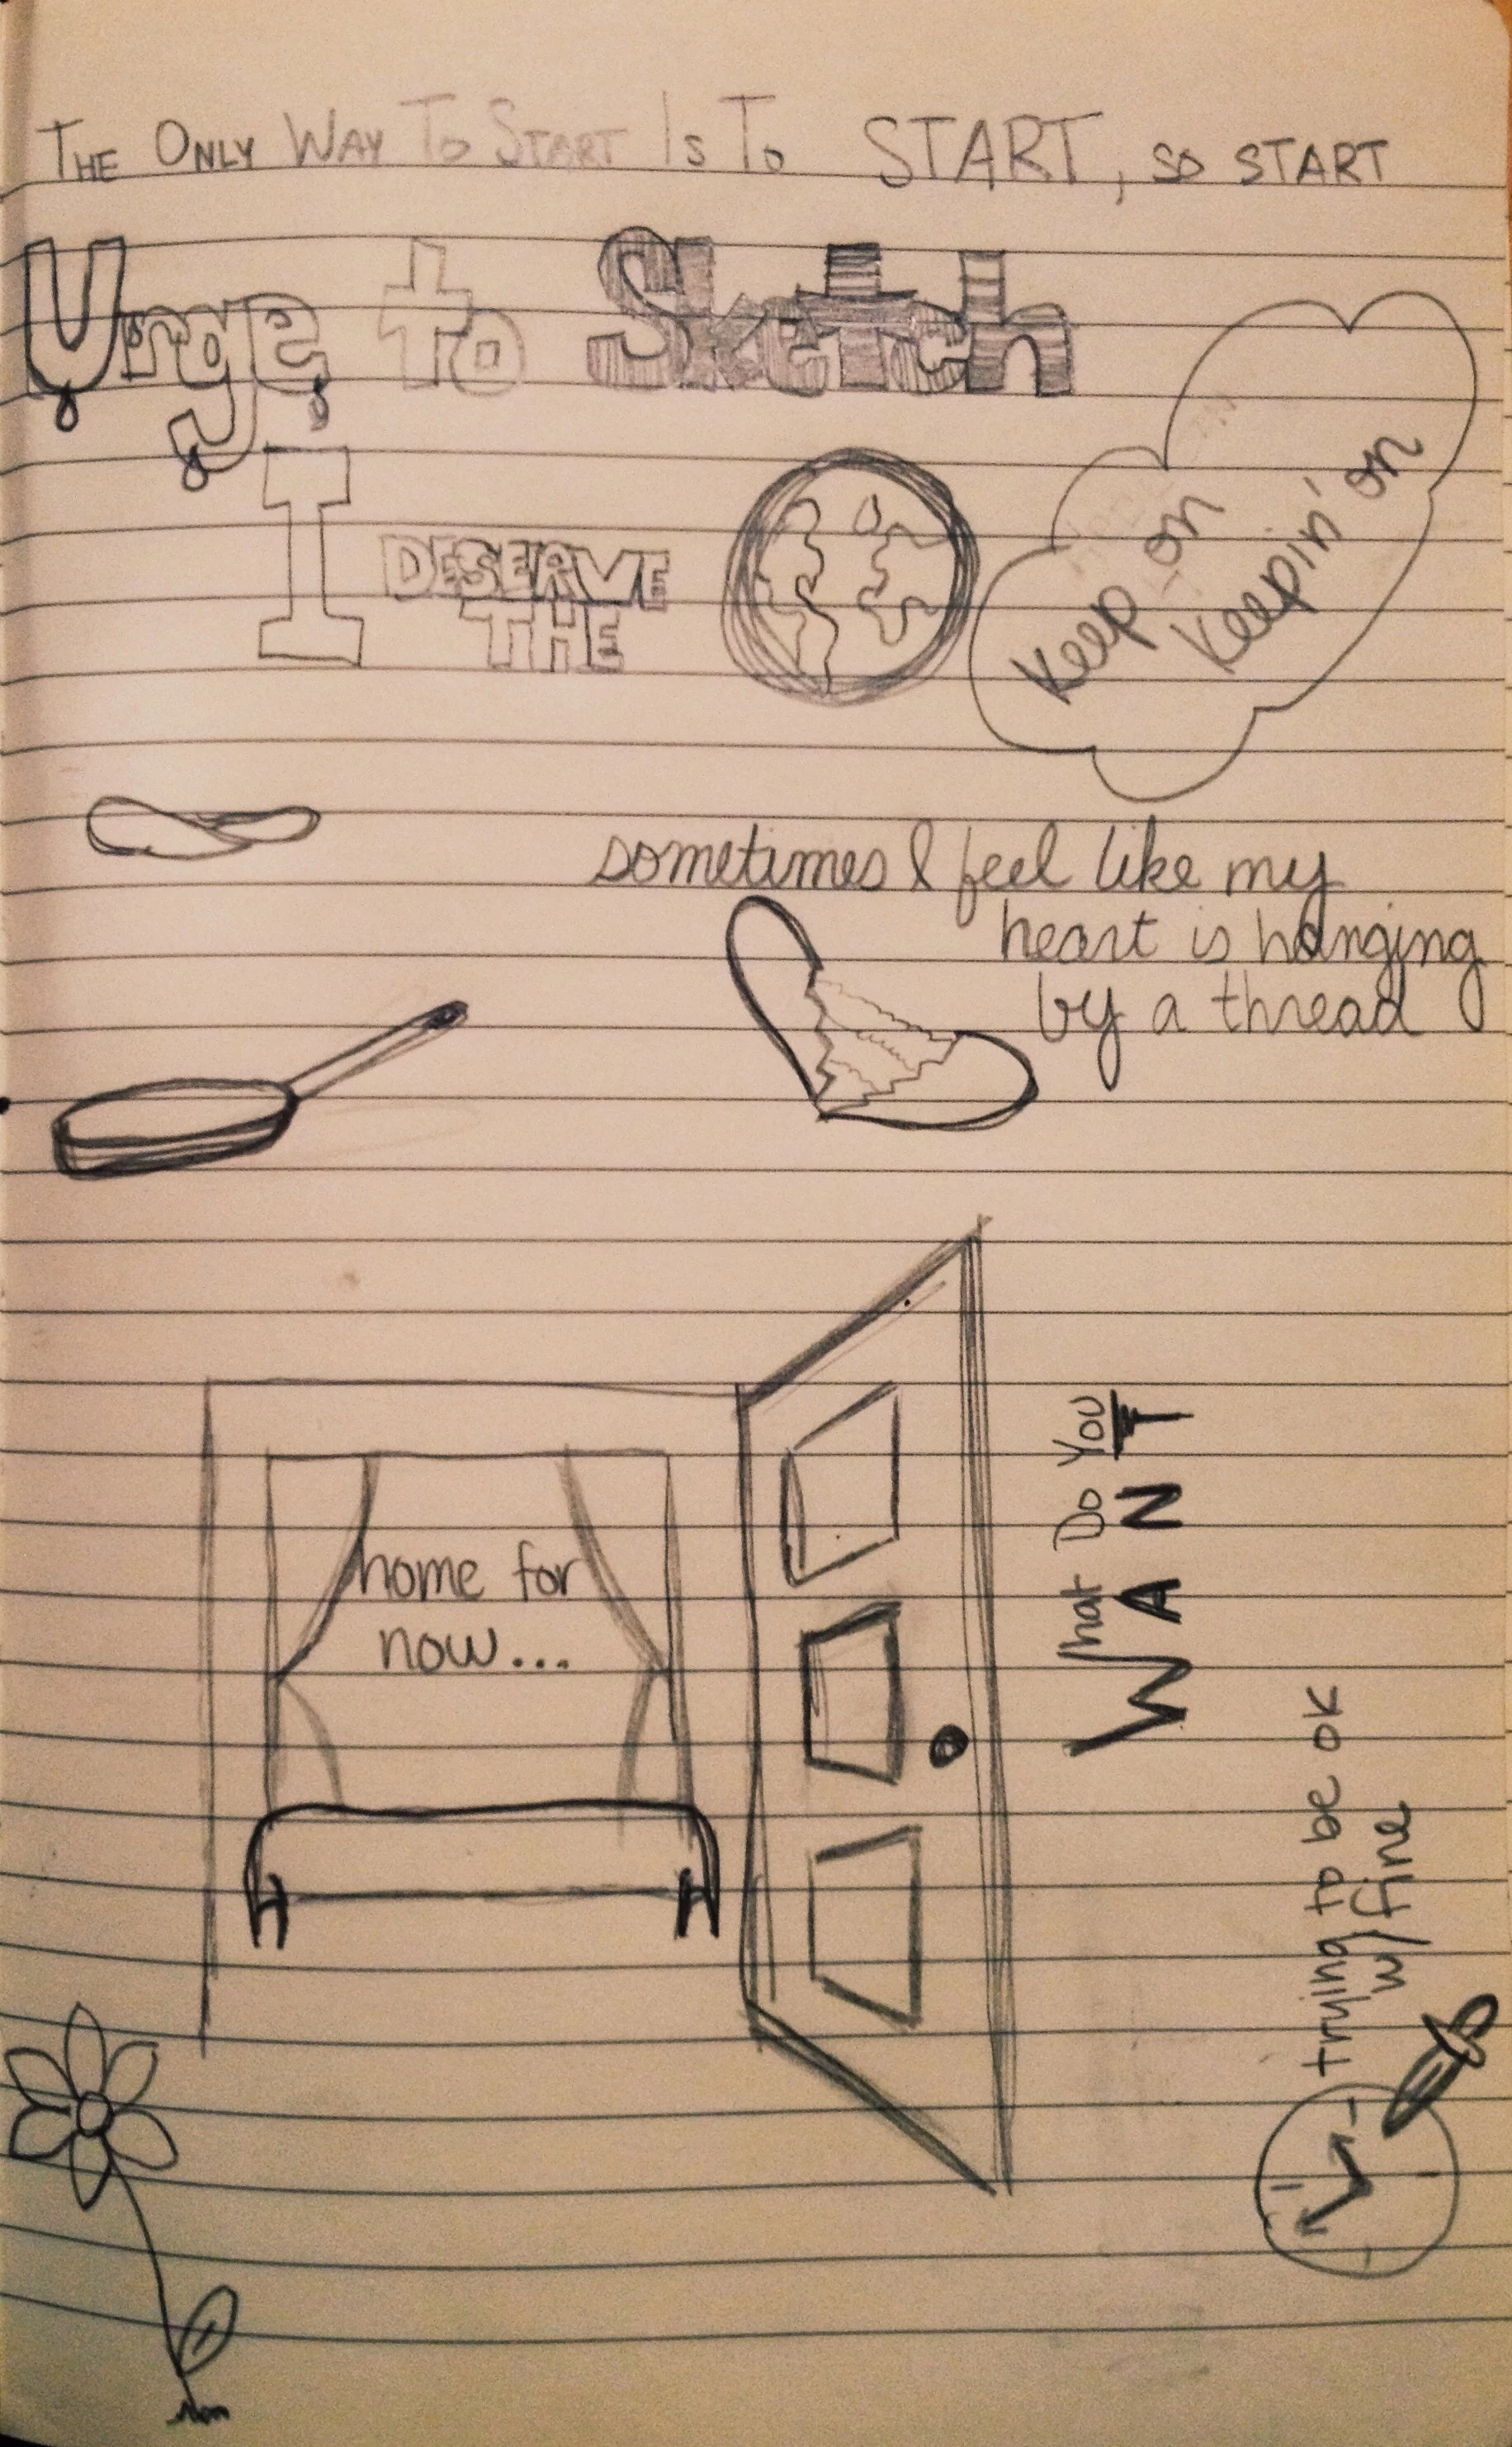 THE ONLY WAY TO START IS TO START, SO START
Urge to Sketch
I DESERVE
THE
Keep on
Keepin' on
sometimes I feel like my
heart is hanging
by a thread
home for
now...
What Do You
WANT
trying to be ok
w/ fine